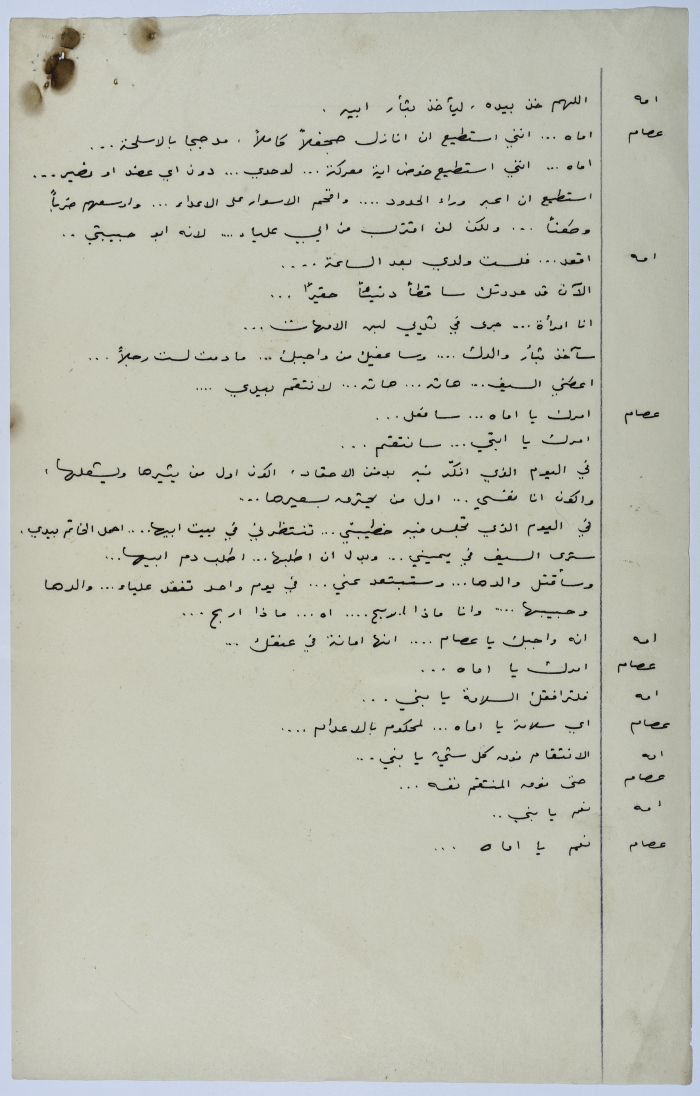 امه اللهم خذ بيده ، ليأخذ بثأر ابيه .
عصام اماه ... انني استطيع ان انازل جحفلاً كاملاً ، مدججا بالاسلحة ...
اماه ... انني استطيع خوض اية معركة ... لوحدي ... دون اي عضد او نصير ...
استطيع ان اعبر وراء الحدود .... واقحم الاسوار على الاعداء ... واوسعهم ضرباً
وطعناً ... ولكن لن اقترب من ابي علياء .... لانه ابو حبيبتي ..
امه اقعد ... فلست ولدي بعد الساعة ....
الآن قد عددتك ساقطاً دنيئاً حقيراً ...
انا امرأة ... جرى في ثديي لبن الامهات ...
سآخذ بثأر والدك .... وساعفيك من واجبك ... ما دمت لست رجلاً ...
اعطني السيف ... هاته ... هاته ... لانتقم بيدي ....
عصام امرك يا اماه ... سافعل ...
امرك يا ابتي ... سانتقم ...
في اليوم الذي افكّر فيه بدفن الاحقاد ، اكون اول من يثيرها ويشعلها ،
واكون انا نفسي ... اول من يحترق بسعيرها ...
في اليوم الذي تجلس فيه خطيبتي ... تنتظرني في بيت ابيها .... احمل الخاتم بيدي .
سترى السيف في يميني ... وبدل ان اطلبها ... اطلب دم ابيها ...
وسأقتل والدها ... وستبتعد عني ... في يوم واحد تفقد علياء ... والدها
وحبيبها .... وانا ماذا اربح .... اه ... ماذا اربح ...
امه انه واجبك يا عصام .... انها امانة في عنقك ...
عصام امرك يا اماه ...
امه فلترافقك السلامة يا بني ...
عصام اي سلامة يا اماه ... لمحكوم بالاعدام ....
امه الانتقام فوق كل شيء يا بني ...
عصام حتى فوق المنتقم نفسه ...
امه نعم يا بني ..
عصام نعم يا اماه ...